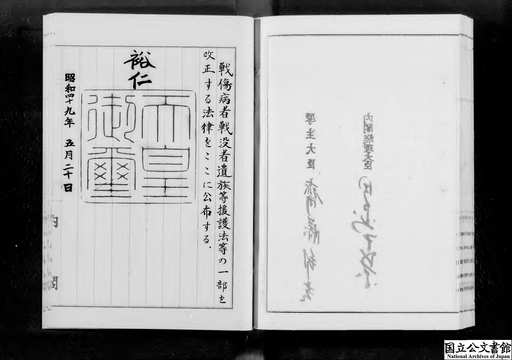 内閣総理大臣
厚生大臣 齋藤邦吉
戦傷病者戦没者遺族等援護法等の一部を
改正する法律をここに公布する。
裕仁
天皇
御璽
昭和四十九年 五月二十日
内閣
国立公文書館
National Archives of Japan